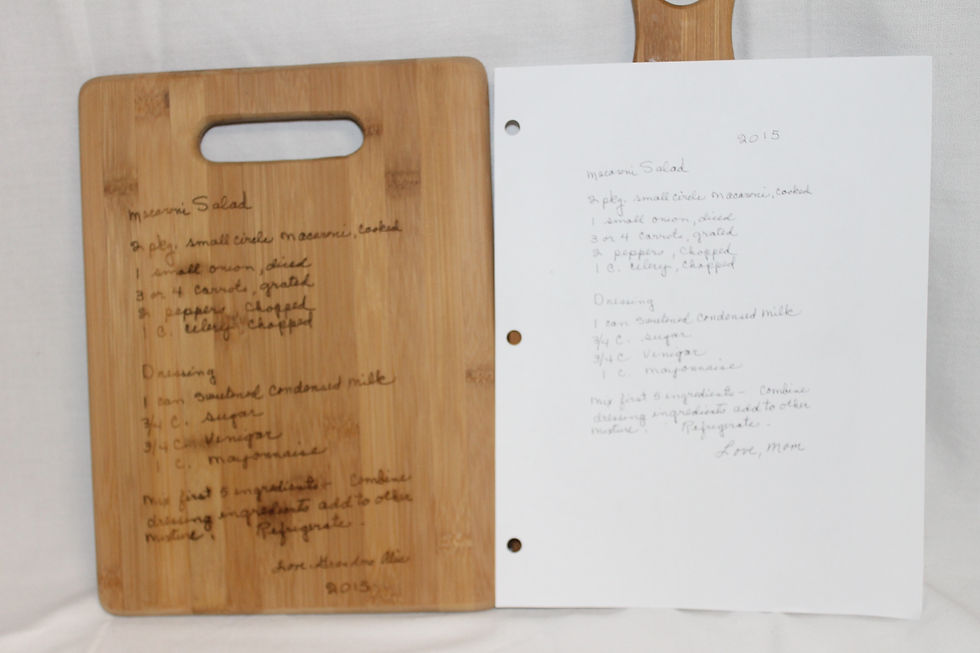 Macaroni Salad
2 pkg. small circle Macaroni, cooked
1 small onion, diced
3 or 4 carrots, grated
2 peppers, chopped
1 C. celery, chopped
Dressing
1 can Sweetened Condensed Milk
3/4 C. sugar
3/4 C. Vinegar
1 C. mayonnaise
Mix first 5 ingredients - Combine
dressing ingredients add to other
mixture. Refrigerate.
Love Grandma
2015
2015
Macaroni Salad
2 pkg. small circle Macaroni, cooked
1 small onion, diced
3 or 4 carrots, grated
2 peppers, chopped
1 C. celery, chopped
Dressing
1 can Sweetened Condensed Milk
3/4 C. sugar
3/4 C Vinegar
1 C. mayonnaise
Mix first 5 ingredients - Combine
dressing ingredients add to other
mixture. Refrigerate.
Love, Mom